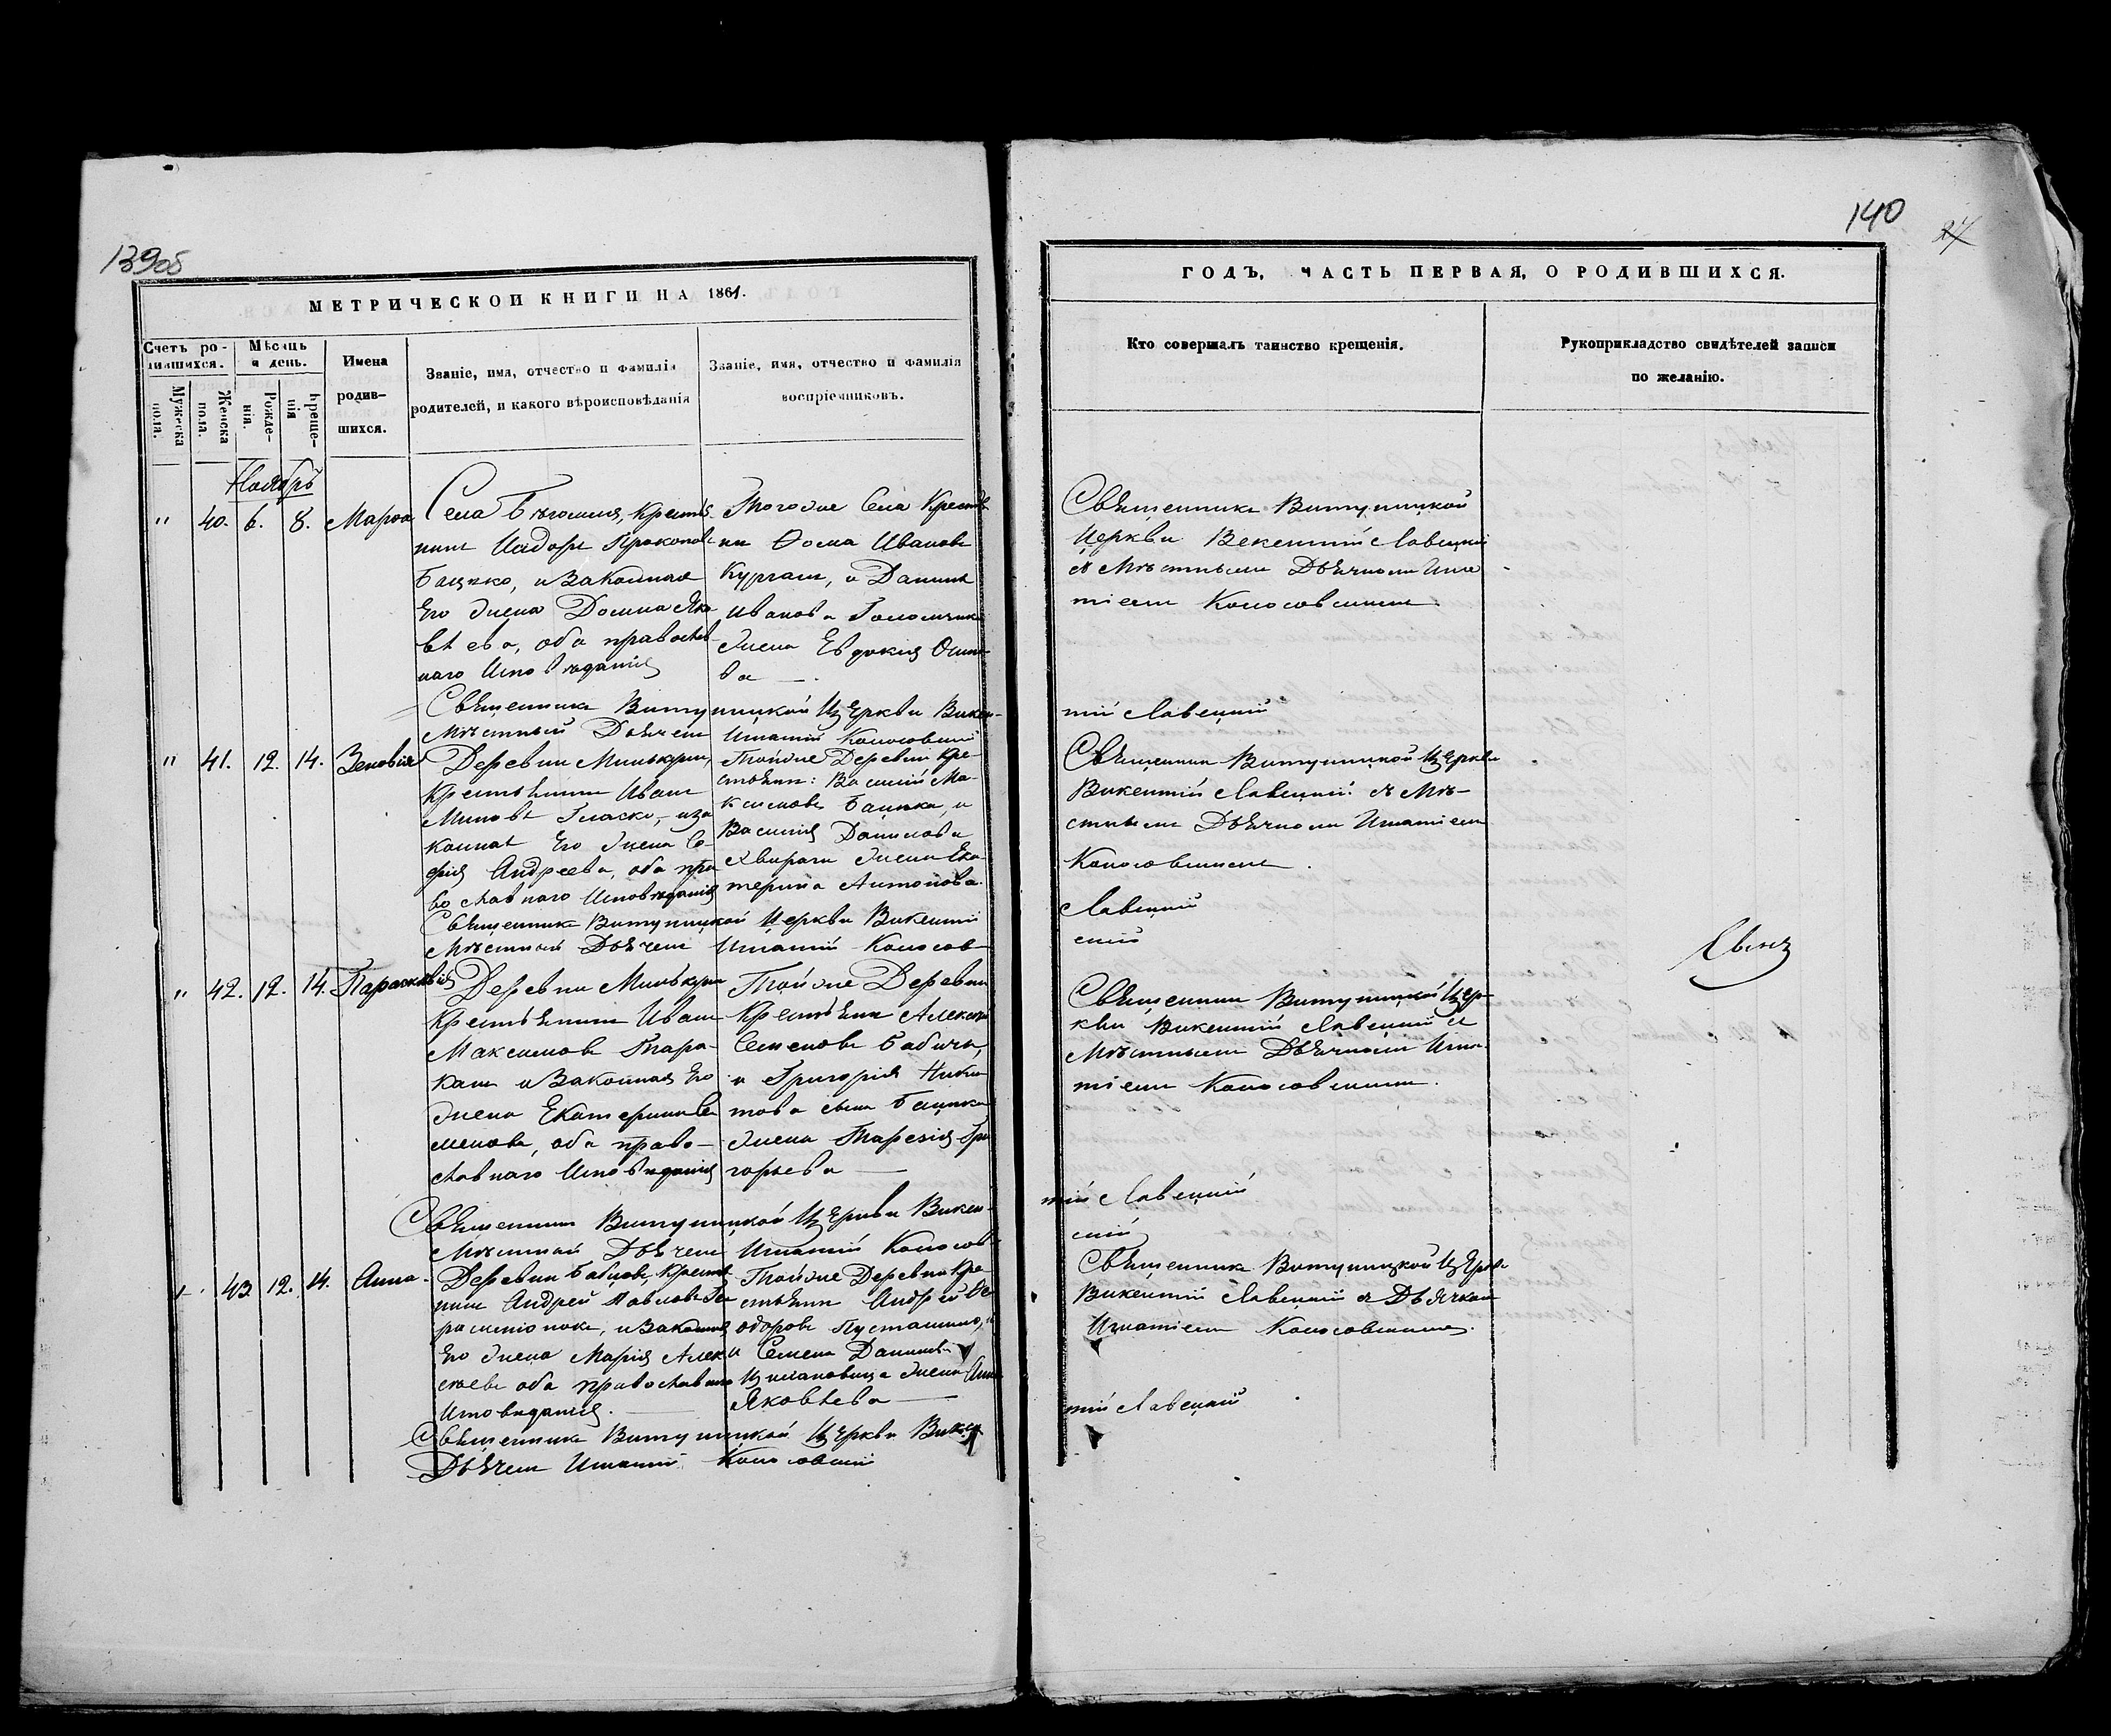 139об
МЕТРИЧЕСКОЙ КНИГИ НА 1861.
Счетъ ро-
дившихся.
Мужеска
пола.
Женска
пола.
Мѣсяцъ
и день.
Рожде-
нія.
Креще-
нія
Имена
родив-
шихся.
Званіе, имя, отчество и фамилія
родителей, и какого вѣроисповѣданія
Званіе, имя, отчество и фамилія
воспріемниковъ.
Ноябрь
" 40. 6. 8. Марѳа
Села Бѣгомля, Крестья-
нинъ Исидоръ Прокоповъ
Бацько, и Законная
Его жена Домна Яко
влева, оба православ-
наго Исповѣданія
Тогоже Села Крестья
нинъ Ѳома Ивановъ
Курганъ, и Данила
Иванова
жена Евдокія Осипо-
ва
Священникъ Витуницкой Церкви Викен-
Мѣстный Дьячекъ Игнатій Колосовскій
" 41. 12. 14. Зеновія
Деревни Милькунъ,
Крестьянинъ Иванъ
Миновъ Гласко, и за
конная Его жена Со-
фія Андреева, оба пра
вославнаго Исповѣданія
Тойже Деревни Кре-
стьянин: Василій Ма-
ксимовъ Бацька, и
Василія Данилова
жена Ека
терина Антонова.
Священникъ Витуницкой Церкви Викентій
Мѣстный Дьячекъ Игнатій Колосов
" 42. 12. 14. Параскевія
Деревни Милькунъ
Крестьянинъ Иванъ
Максимовъ Тара-
канъ и Законная Его
жена Екатерина Се
менова, оба право-
славнаго Исповѣданія
Тойже Деревни
Крестьянин Алексѣй
Семеновъ Бабичъ,
и Григорія Ники
това сына Бацька
жена Тарезія Гри
горьева
Священникъ Витуницкой Церкви Викен-
Мѣстный Дьячекъ Игнатій Колосов
43 12. 14. Анна
Деревни Бабцовъ, Крестья
нинъ Андрей Павловъ Ге
расименокъ, и Законная
Его жена Марія Алек
сѣева оба православнаго
Исповѣданія.
Тойже Деревни Кре-
стьянин Андрей Ѳе
одоровъ Пусташило,
и Семена Данилова
жена Анна
Яковлева
Священникъ Витуницкой Церкви Викен
Дьячекъ Игнатій Колосовскій
140
24
ГОДЪ, ЧАСТЬ ПЕРВАЯ, О РОДИВШИХСЯ.
Кто совершалъ таинство крещенія.
Рукоприкладство свидѣтелей записи
по желанію.
Священникъ Витуницкой
Церкви Викентій Лавецкій
съ Мѣстнымъ Дьячкомъ Игна
тіемъ Колосовскимъ.
тій Лавецкій
Священник Витуницкой Церкви
Викентій Лавецкій съ Мѣ-
стнымъ Дьячкомъ Игнатіем
Колосовскимъ.
Лавецкій
скій
Священникъ Витуницкой Цер-
кви Викентій Лавецкій съ
Мѣстнымъ Дьячкомъ Игна-
тіемъ Колосовскимъ.
тій Лавецкій
скій
Священникъ Витуницкой Церкв
Викентій Лавецкій съ Дьячком
Игнатіемъ Колосовскимъ.
тій Лавецкій